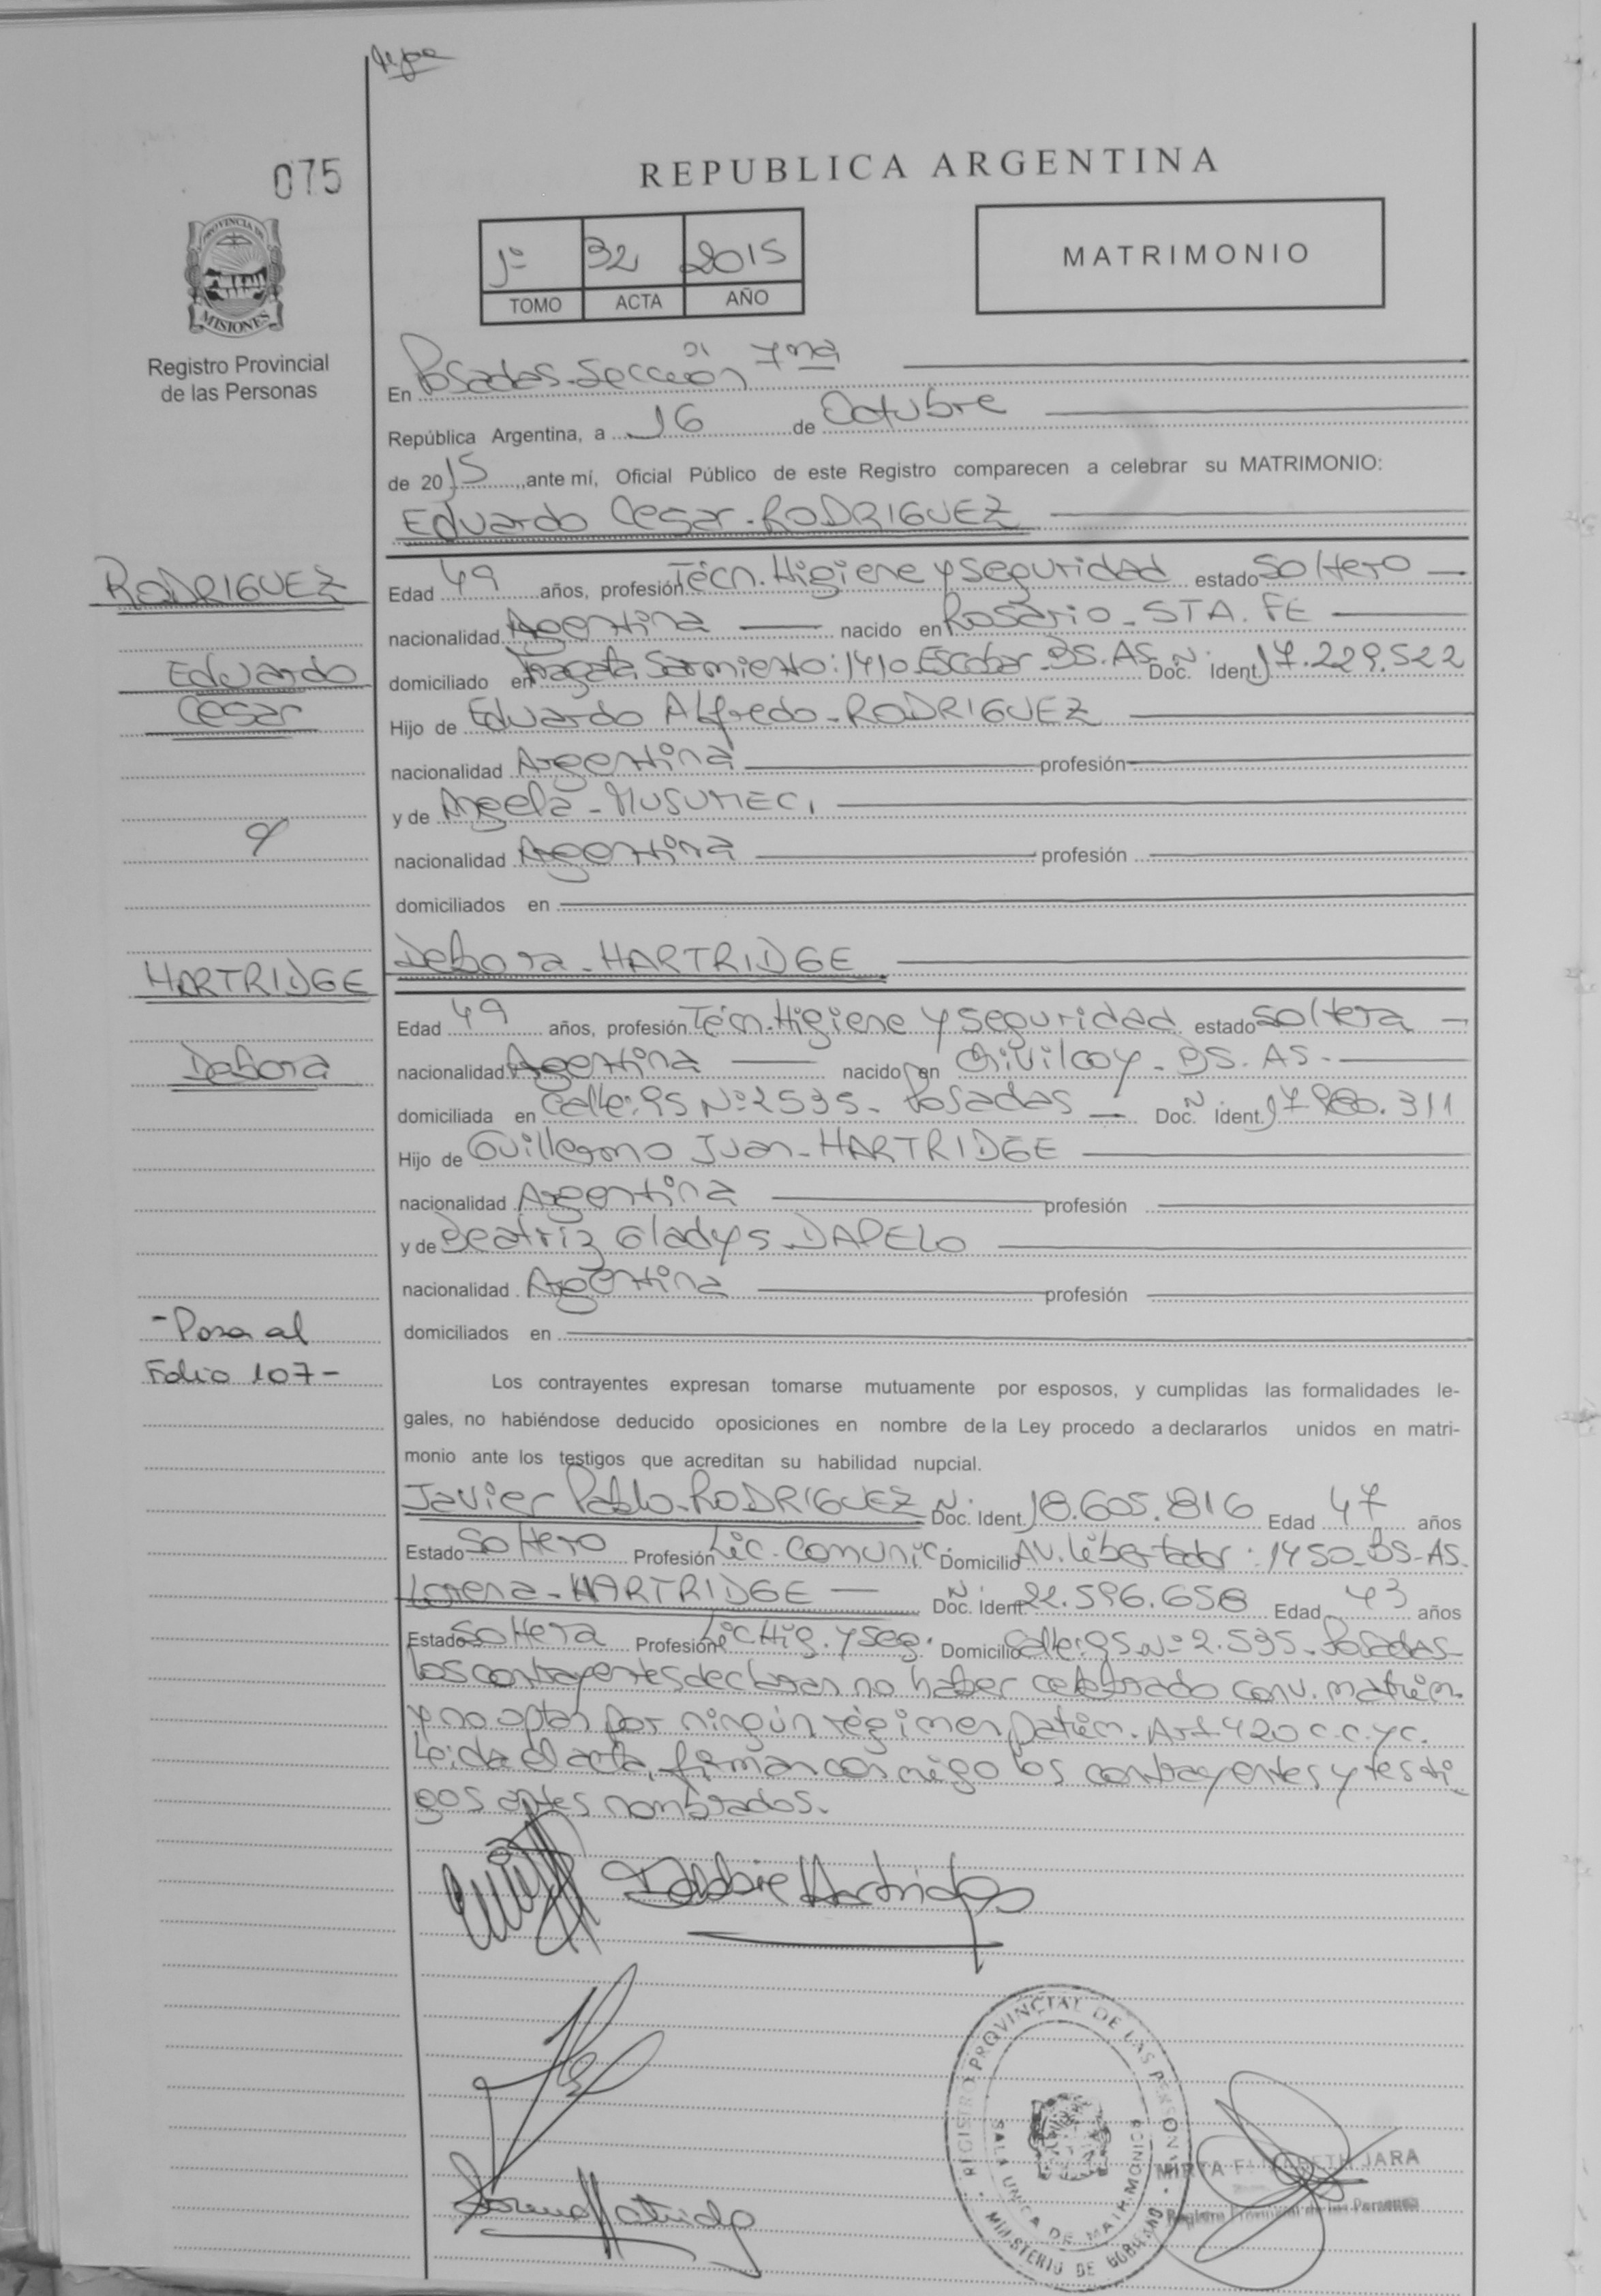 075
REPUBLICA ARGENTINA
1º 32 2015
TOMO ACTA AÑO
MATRIMONIO
PROVINCIA DE
MISIONES
Registro Provincial
de las Personas
En Posadas-Sección 7ma
República Argentina, a 16 de Octubre
de 2015, ante mí, Oficial Público de este Registro comparecen a celebrar su MATRIMONIO:
Eduardo Cesar-RODRIGUEZ
RODRIGUEZ
Edad 49 años, profesión Técn. Higiene y Seguridad estado Soltero
nacionalidad Argentina nacido en Rosario-STA. FE
Eduardo
domiciliado en Fragata Sarmiento:1410 Escobar-BS.AS. Doc. N. Ident. 17.229.522
Cesar
Hijo de Eduardo Alfredo-RODRIGUEZ
nacionalidad Argentina profesión
y de Angela-MUSUMECI
y
nacionalidad Argentina profesión
domiciliados en
Debora-HARTRIDGE
HARTRIDGE
Edad 49 años, profesión Técn. Higiene y Seguridad estado Soltera
Debora
nacionalidad Argentina nacido en Chivilcoy-BS. AS.
domiciliada en Calle:95 Nº2535-Posadas Doc. N. Ident. 311
Hijo de Guillermo Juan-HARTRIDGE
nacionalidad Argentina profesión
y de Beatriz Gladys-DAPELO
nacionalidad Argentina profesión
-Pasa al
domiciliados en
Folio 107-
Los contrayentes expresan tomarse mutuamente por esposos, y cumplidas las formalidades le-
gales, no habiéndose deducido oposiciones en nombre de la Ley procedo a declararlos unidos en matri-
monio ante los testigos que acreditan su habilidad nupcial.
Javier Pablo-RODRIGUEZ Doc. N. Ident. 18.605.816 Edad 47 años
Estado Soltero Profesión Lic. Comunic. Domicilio AV. Libertador:1450-BS-AS.
Lorena-HARTRIDGE Doc. N. Ident. 22.596.658 Edad 43 años
Estado Soltera Profesión Lic Hig. y Seg. Domicilio Calle:95 Nº2.535-Posadas
Los contrayentes declaran no haber celebrado conv. matrim.
y no optan por ningún régimen patrim. Art. 420 C.C.yC.
Leida el acta, firman conmigo los contrayentes y testi-
gos antes nombrados.
Debbie Hartridge
REGISTRO PROVINCIAL DE LAS PERSONAS
SALA UNICA DE MATRIMONIOS
MINISTERIO DE GOBIERNO
MIRTA JARA
Registro Provincial de las Personas
Lorena Hartridge